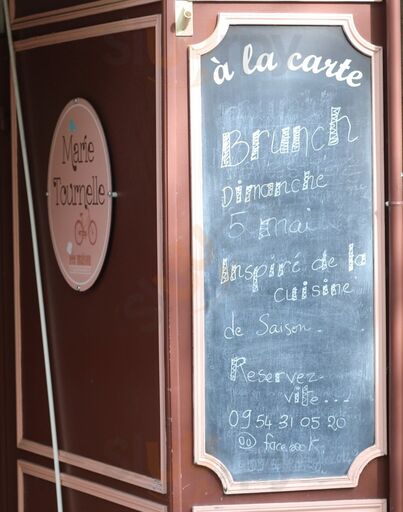 Marie
Tournelle
à la carte
Brunch
Dimanche
5 mai
Inspiré de la
cuisine
de Saison.
Reservez
vite...
09 54 31 05 20
facebook